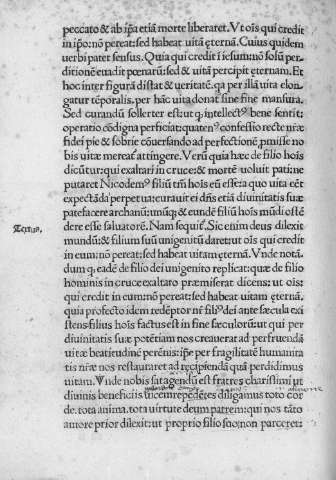 peccato & ab ip̄a etiā morte liberaret. Vt oīs qui credit
in ip̄o: nō pereat: sed habeat uitā ęternā. Cuius quidem
uerbi patet sensus. Quia qui credit ī iesum: nō solū per-
ditionē euadit pœnarū: sed & uitā percipit ęternam. Et
hoc inter figurā distat & ueritatē. qa per illā uita elon-
gatur tēporalis. per hāc uita donat̄ sine fine mansura.
Sed curandū sollerter est: ut q. intellectꝰ bene sentit:
operatio cōdigna perficiat: quatenꝰ confessio recte nr̄æ
fidei pie & sobrie cōuersando ad perfectionē, pmisse no
bis uitæ mereat̄ attingere. Verū quia hæc de filio hoīs
dicūtur: qui exaltari in cruce: & mortē uoluit pati: ne
putaret Nicodemꝰ filiū tm̄ hoīs eū esse: a quo uita eēt
expectāda perpetua: curauit ei dn̄s etiā diuinitatis suæ
patefacere archanū: unūq; & eundē filiū hoīs mūdi oſtē
dere esse saluatorē. Nam sequit̄. Sic enim deus dilexit
Textus.
mundū: & filium suū unigenitū daret: ut oīs qui credit
in eum: nō pereat: sed habeat uitam ęternā. Vnde notā-
dum q. eadē de filio dei unigenito replicat: quæ de filio
hominis in cruce exaltato præmiserat dicens: ut oīs:
qui credit in eum: nō pereat: sed habeat uitam ęternā.
quia profecto idem redēptor nr̄ filiꝰ dei ante sæcula exi
stens filius hoīs factus est in fine sæculorū: ut qui per
diuinitatis suæ potētiam nos creauerat ad perfruendā
uitæ beatitudinē perēnis: ip̄e per fragilitatē humanita
tis nr̄æ nos restauraret ad recipiendā quā perdidimus
uitam. Vnde nobis satagendū est fratres charissimi ut
diuinis beneficiis uicem repēdētes diligamus toto cor
de. tota anima. tota uirtute deum patrem: qui nos tāto
autore prior dilexit: ut proprio filio suo non parceret: